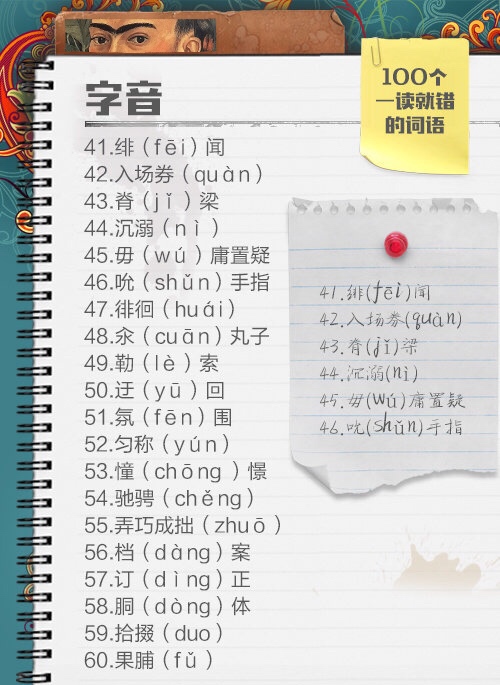 100个
一读就错
的词语
字音
41.绯（fēi）闻
42.入场券（quàn）
43.脊（jǐ）梁
44.沉溺（nì）
45.毋（wú）庸置疑
46.吮（shǔn）手指
47.徘徊（huái）
48.汆（cuān）丸子
49.勒（lè）索
50.迂（yū）回
51.氛（fēn）围
52.匀称（yún）
53.憧（chōng ）憬
54.驰骋（chěng）
55.弄巧成拙（zhuō）
56.档（dàng）案
57.订（dìng）正
58.胴（dòng）体
59.拾掇（duo）
60.果脯（fǔ）
41.绯(fēi)闻
42.入场券(quàn)
43.脊(jǐ)梁
44.沉溺(nì)
45.毋(wú)庸置疑
46.吮(shǔn)手指